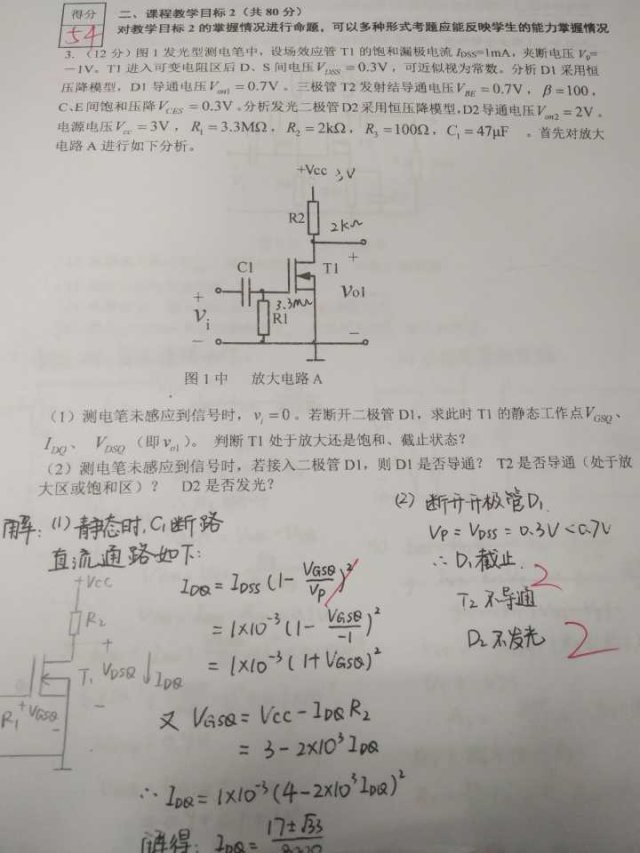 得分
54
二、课程教学目标 2（共 80 分）
对教学目标 2 的掌握情况进行命题，可以多种形式考题应能反映学生的能力掌握情况
3.（12 分）图 1 发光型测电笔中，设场效应管 T1 的饱和漏极电流 I_DSS=1mA，夹断电压 V_P=
－1V。T1 进入可变电阻区后 D、S 间电压 V_DSS = 0.3V，可近似视为常数。分析 D1 采用恒
压降模型，D1 导通电压 V_on1 = 0.7V。三极管 T2 发射结导通电压 V_BE = 0.7V，β=100，
C、E 间饱和压降 V_CES = 0.3V。分析发光二极管 D2 采用恒压降模型，D2 导通电压 V_on2 = 2V。
电源电压 V_cc = 3V，R₁ = 3.3MΩ，R₂ = 2kΩ，R₃ =100Ω，C₁ = 47μF 。首先对放大
电路 A 进行如下分析。
+Vcc 3V
R2 2kΩ
C1
T1
+
Vo1
−
3.3mΩ
R1
+
Vi
−
图 1 中 放大电路 A
（1）测电笔未感应到信号时，v_i = 0。若断开二极管 D1，求此时 T1 的静态工作点 V_GSQ、
I_DQ、 V_DSQ （即 v_o1）。 判断 T1 处于放大还是饱和、截止状态？
（2）测电笔未感应到信号时，若接入二极管 D1，则 D1 是否导通？ T2 是否导通（处于放
大区或饱和区）？ D2 是否发光？
解：(1) 静态时，C₁断路
直流通路如下：
+Vcc
R₂
+
T₁ VDSQ ↓IDQ
−
R₁ + VGSQ −
IDQ = IDSS (1 − VGSQ/VP)²
= 1×10⁻³ (1 − VGSQ/−1)²
= 1×10⁻³ (1 + VGSQ)²
又 VGSQ = VCC − IDQ R₂
= 3 − 2×10³ IDQ
∴ IDQ = 1×10⁻³ (4 − 2×10³ IDQ)²
解得：IDQ = 17±√33
(2) 断开开极管D₁
VP = VDSS = 0.3V < 0.7V
∴ D₁截止.
2
T₂ 不导通
D₂ 不发光
2